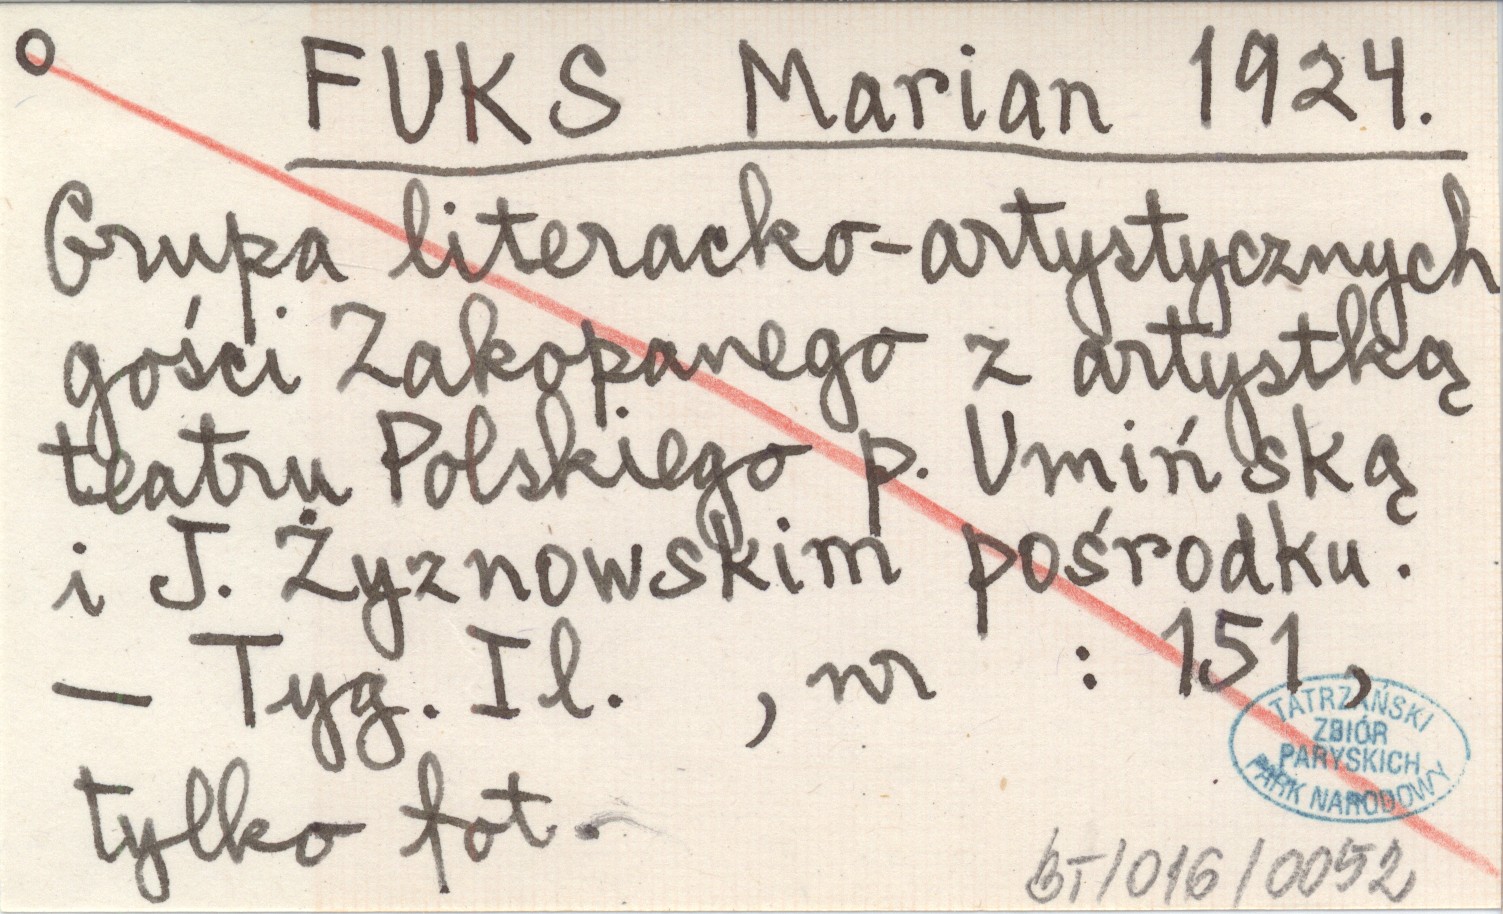 FUKS Marian 1924.
Grupa literacko-artystycznych
gości Zakopanego z artystką
teatru Polskiego p. Umińską
i J. Żyznowskim pośrodku.
— Tyg. Il. , nr : 151,
tylko fot.
TATRZAŃSKI
ZBIÓR
PARYSKICH
PARK NARODOWY
BT/016/0052